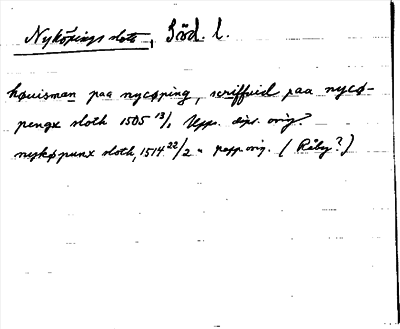 Nyköpings slott, Söd. l.
høuisman paa nycøping, scriffuid paa nycø-
pengx sloth 1505 13/1 Upps. dipl. orig.
nyskøpunx sloth, 1514 22/2 " papp. orig. (Råby?)